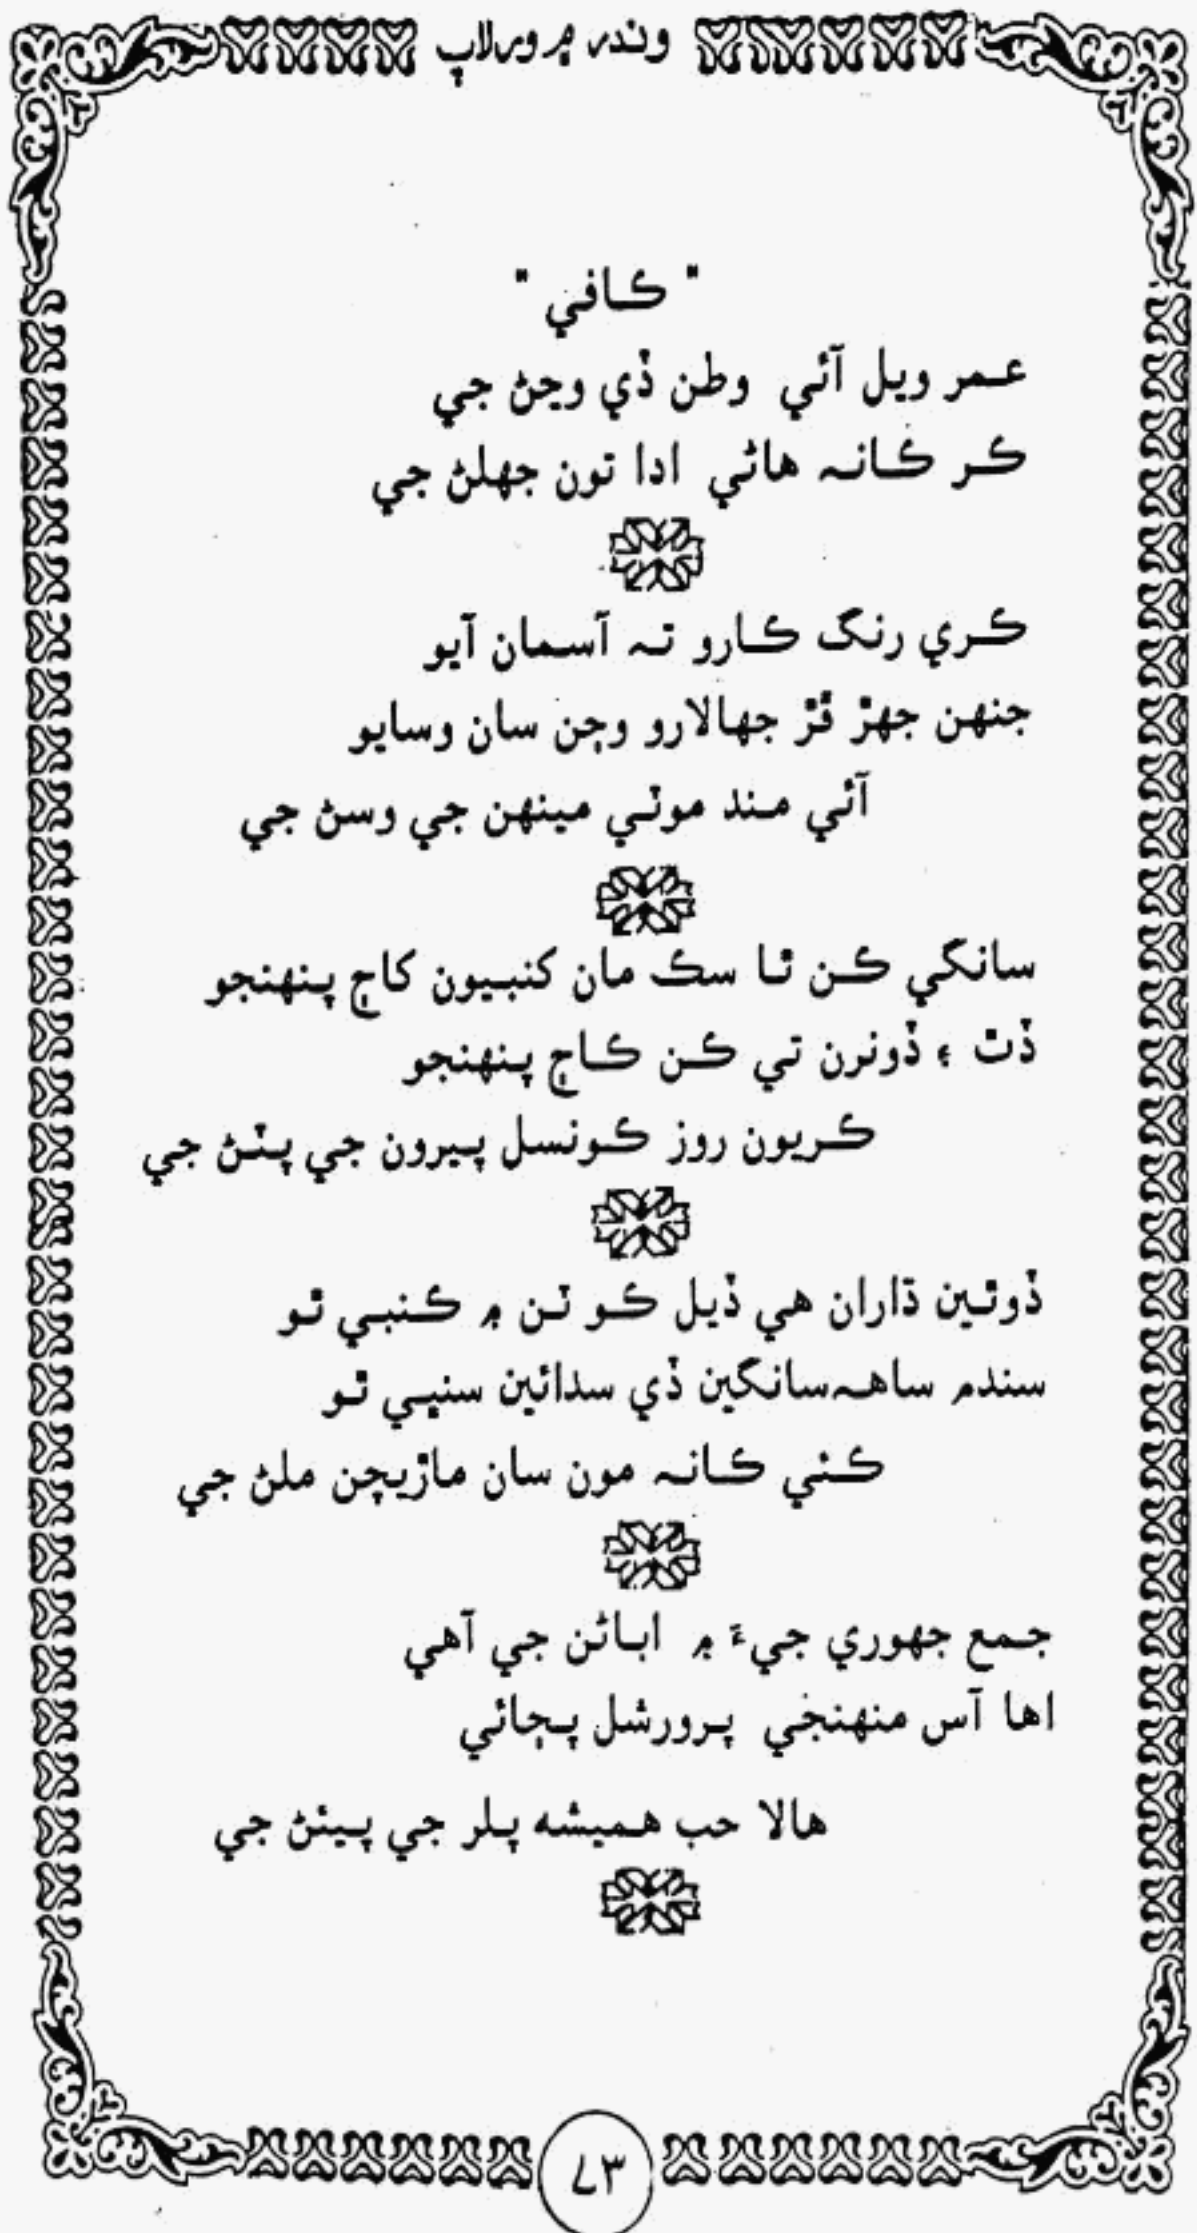 وندر ۾ ورلاپ
" ڪافي "
عمر ويل آئي وطن ڏي وڃڻ جي
ڪر ڪانہ هاڻي ادا تون جھلڻ جي
ڪري رنگ ڪارو تہ آسمان آيو
جنهن جھڙ ڦڙ جھالارو وڄن سان وسايو
آئي مند موٽي مينهن جي وسڻ جي
سانگي ڪن ٿا سڪ مان کنبيون کاڄ پنهنجو
ڏٿ ۽ ڏونرن تي ڪن ڪاڄ پنهنجو
ڪريون روز ڪونسل پيرون جي پٽڻ جي
ڏوٿين ڌاران هي ڏيل ڪوٽن ۾ ڪنبي ٿو
سندم ساهہ سانگين ڏي سدائين سنڀي ٿو
ڪئي ڪانہ مون سان ماڙيچن ملڻ جي
جمع جھوري جيءَ ۾ اباڻن جي آهي
اها آس منهنجي پرور شل پڄائي
هالا حب هميشه پلر جي پيئڻ جي
٧٣